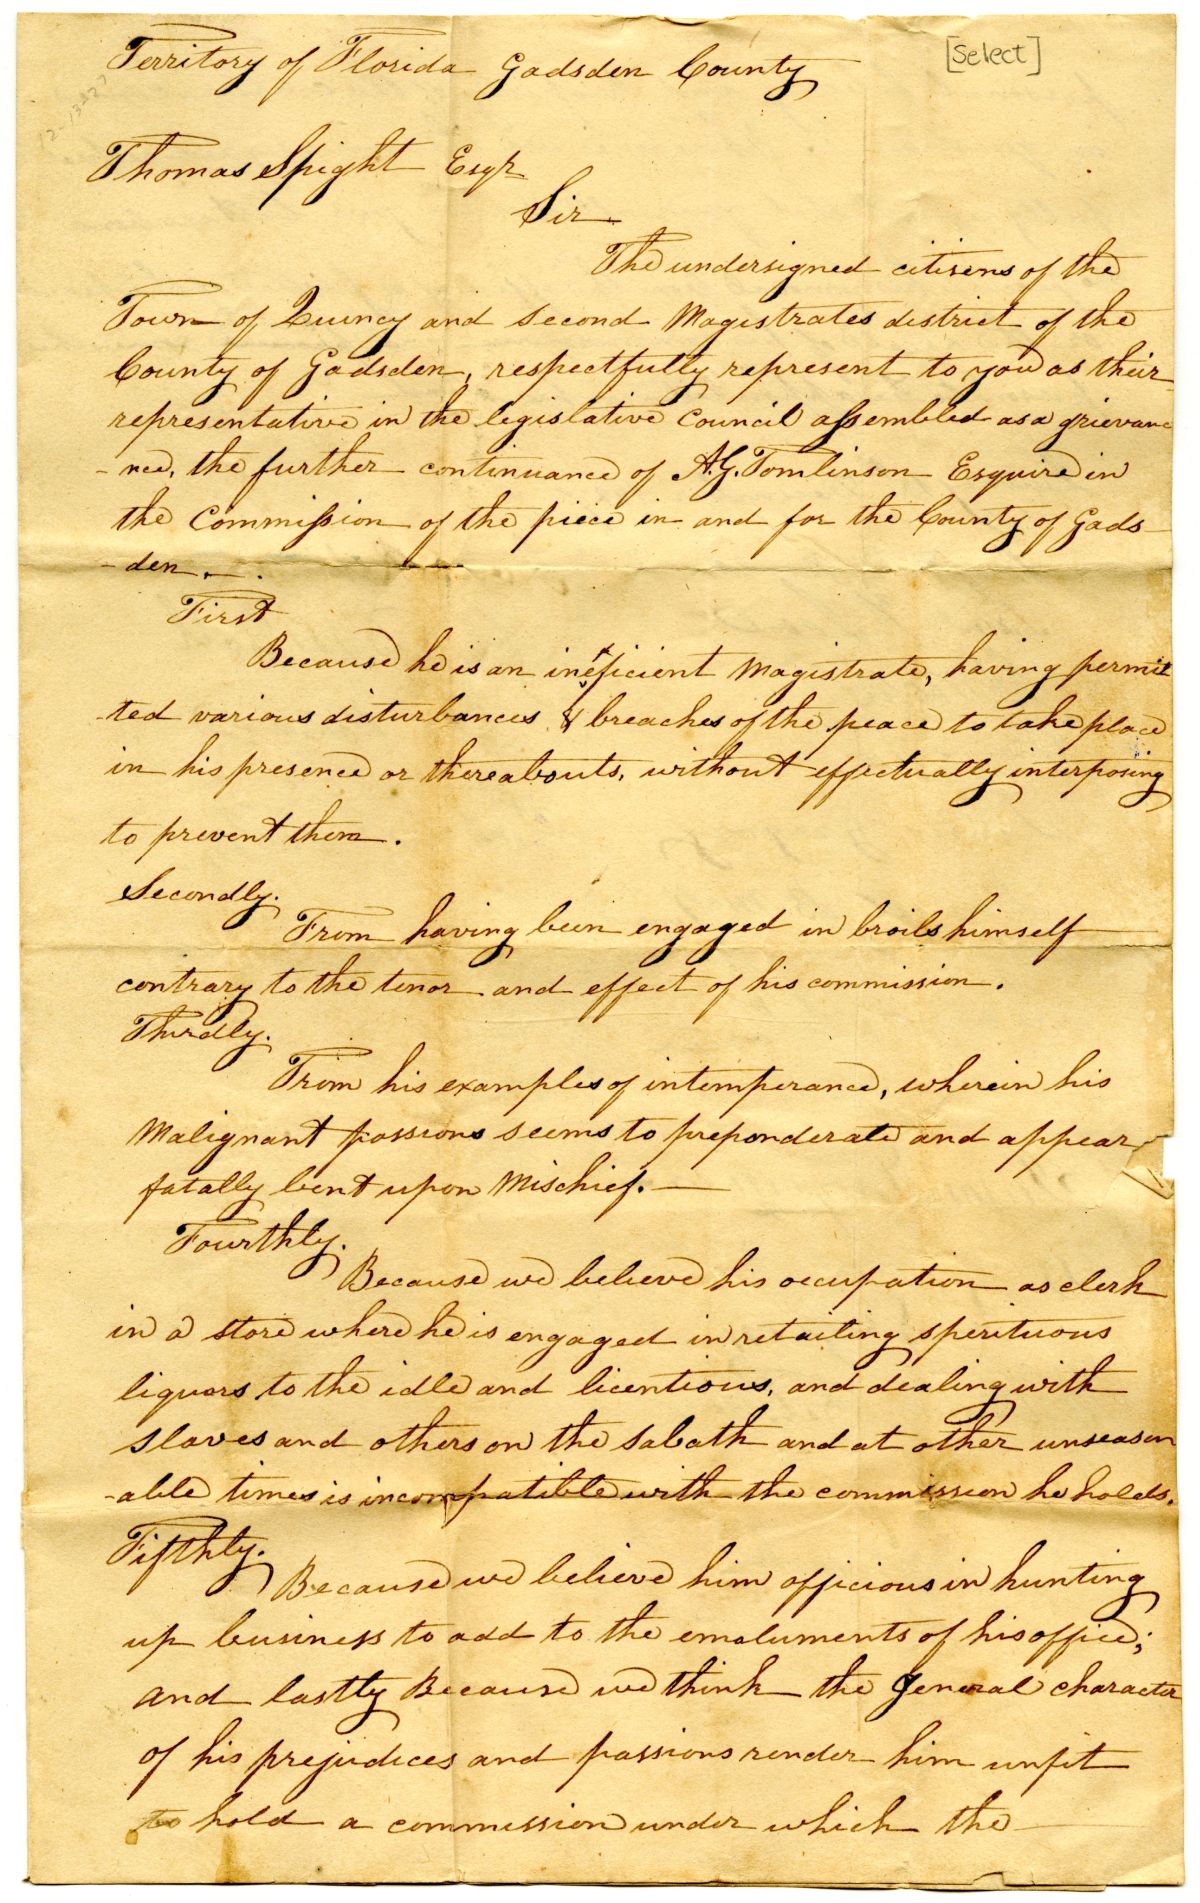 Territory of Florida Gadsden County
[Select]
Thomas Spight Esqr
Sir
The undersigned citisens of the
Town of Quincy and second Magistrates district of the
County of Gadsden, respectfully represent to you as their
representative in the legislative Council assembled as a grievanc
-nce, the further continuance of A.G. Tomlinson Esquire in
the Commission of the piece in and for the County of Gads
-den.
First
Because he is an inefficient Magistrate, having permit
-ted various disturbances & breaches of the peace to take place
in his presence or thereabouts, without effectually interposing
to prevent them.
Secondly.
From having been engaged in broils himself
contrary to the tenor and effect of his commission.
Thirdly.
From his examples of intemperance, wherein his
Malignant passions seems to preponderate and appear
fatally bent upon Mischief.
Fourthly.
Because we believe his occupation as clerk
in a store where he is engaged in retailing sperituous
liquors to the idle and licentious, and dealing with
slaves and others on the sabath and at other unseason
-able times is incompatible with the commission he holds.
Fifthly.
Because we believe him officious in hunting
up business to add to the emoluments of his office;
and lastly Because we think the general character
of his prejudices and passions render him unfit
to hold a commission under which the